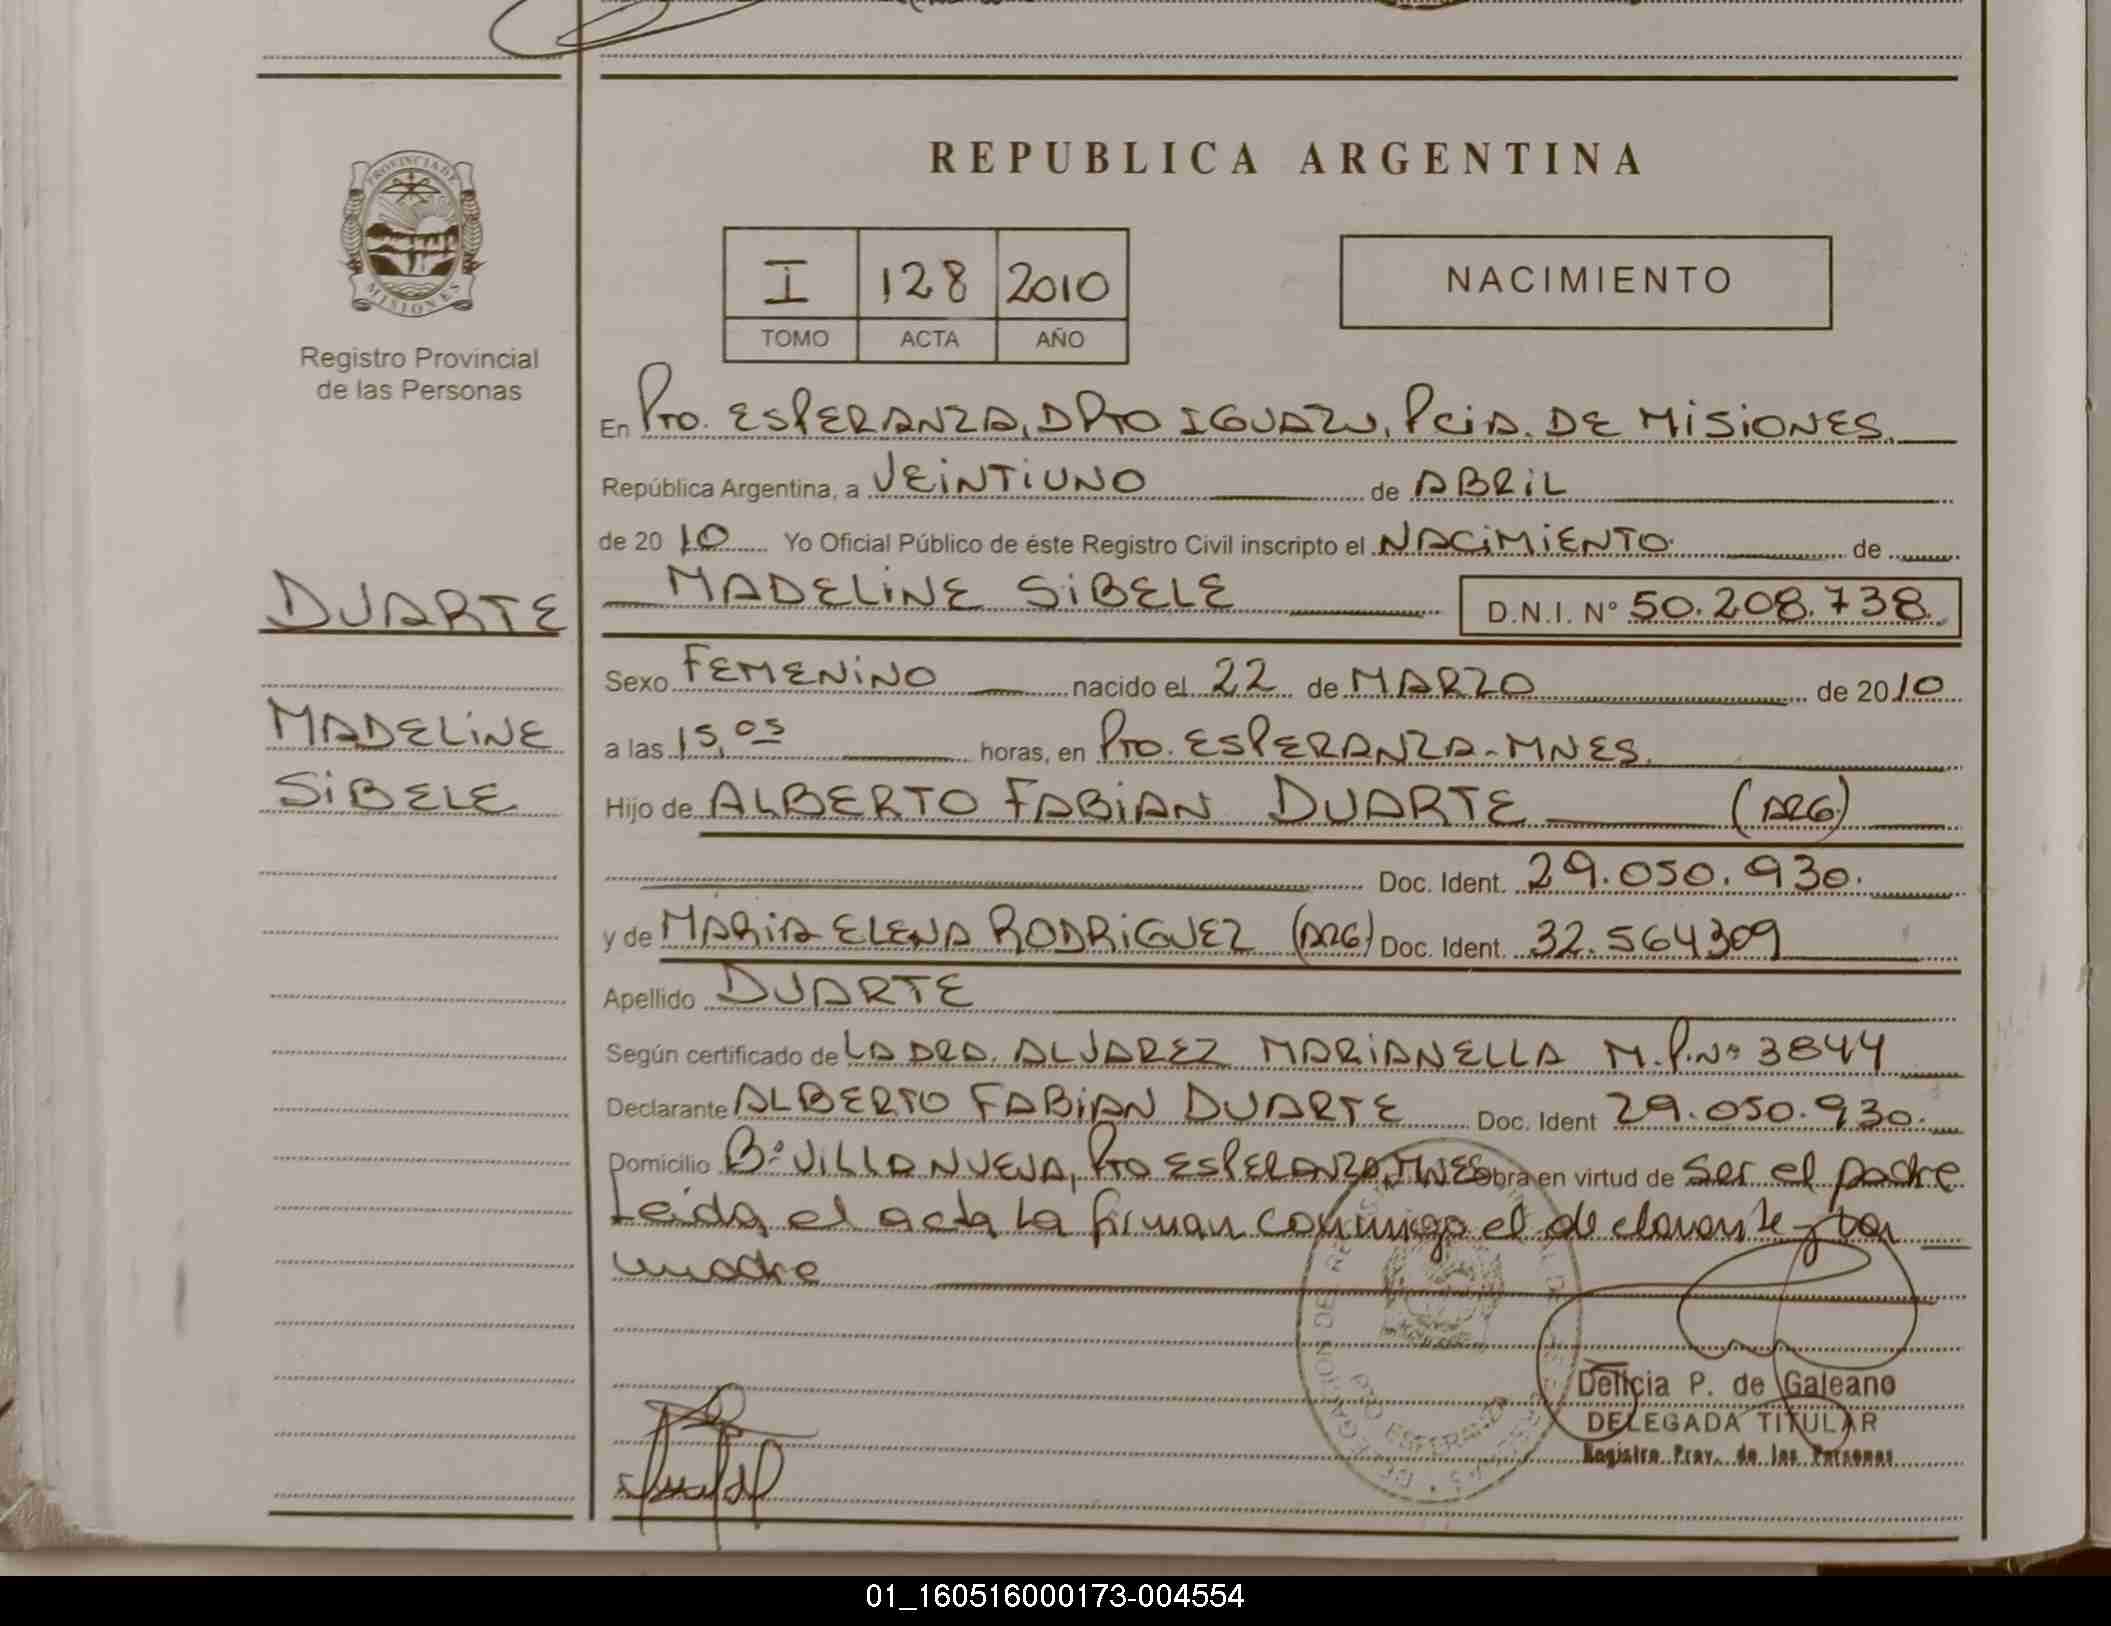 REPUBLICA ARGENTINA
PROVINCIA DE
MISIONES
Registro Provincial
de las Personas
I 128 2010
TOMO ACTA AÑO
NACIMIENTO
En Pto. ESPERANZA, DPTO IGUAZU, PciA. DE MISIONES.
República Argentina, a VEINTIUNO de ABRIL
de 2010 Yo Oficial Público de éste Registro Civil inscripto el NACIMIENTO de
DUARTE
MADELINE SIBELE D.N.I. Nº 50.208.738.
Sexo FEMENINO nacido el 22 de MARZO de 2010
MADELINE
a las 15,05 horas, en Pto. ESPERANZA-MNES.
SIBELE
Hijo de ALBERTO FABIAN DUARTE (ARG)
Doc. Ident. 29.050.930.
y de MARIA ELENA RODRIGUEZ (ARG) Doc. Ident. 32.564309
Apellido DUARTE
Según certificado de LA DRA. ALVAREZ MARIANELLA M.P.Nº 3844
Declarante ALBERTO FABIAN DUARTE Doc. Ident 29.050.930.
Domicilio Bº VILLA NUEVA, Pto ESPERANZA, MNES obra en virtud de Ser el padre
Leida el acta la firman conmigo el declarante y la
madre
PTO ESPERANZA
Delicia P. de Galeano
DELEGADA TITULAR
Registro Prov. de las Personas
01_160516000173-004554